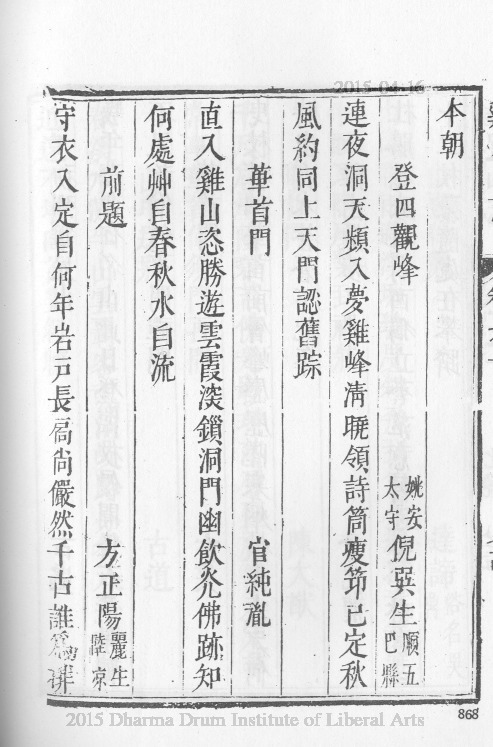 2015-04-16
本朝
登四觀峰 姚安太守倪巽生順五巴縣
連夜洞天頻入夢雞峰清曉領詩筒瘦笻已定秋
風約同上天門認舊踪
華首門 官純胤
直入雞山恣勝遊雲霞淡鎖洞門幽飲光佛跡知
何處艸自春秋水自流
前題 方正陽麗生陸凉
守衣入定自何年岩戸長扃尚儼然千古誰爲
868
2015 Dharma Drum Institute of Liberal Arts